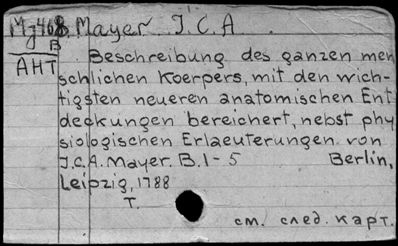 Mj468 Mayer J.C.A.
B
AHT Beschreibung des ganzen men
schlichen Koerpers, mit den wich-
tigsten neueren anatomischen Ent
deckungen bereichert, nebst phy
siologischen Erlaeuterungen von
J.C.A. Mayer. B.1-5 Berlin,
Leipzig, 1788
T.
см. след. карт.